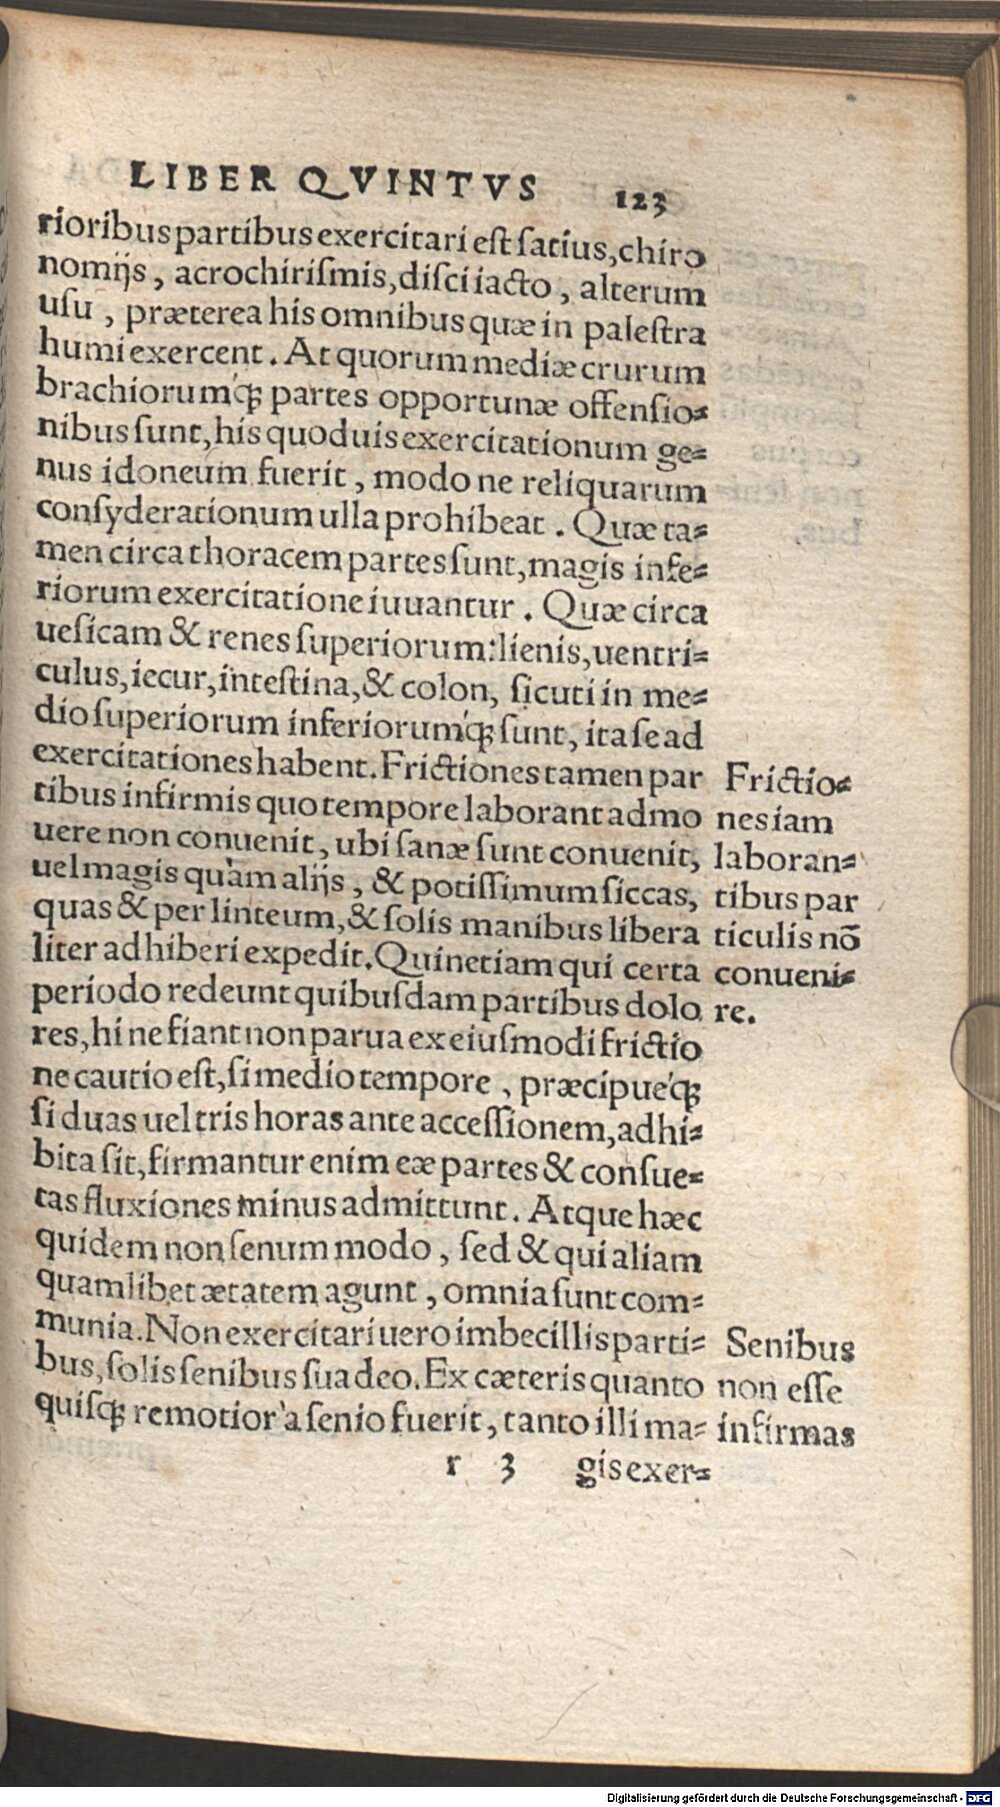 LIBER QVINTVS 123
rioribus partibus exercitari est satius, chiro
nomijs, acrochirismis, disci iacto, alterum
usu, præterea his omnibus quæ in palestra
humi exercent. At quorum mediæ crurum
brachiorumq́; partes opportunæ offensio=
nibus sunt, his quoduis exercitationum ge=
nus idoneum fuerit, modo ne reliquarum
consyderationum ulla prohibeat. Quæ ta=
men circa thoracem partes sunt, magis infe=
riorum exercitatione iuuantur. Quæ circa
uesicam & renes superiorum: lienis, uentri=
culus, iecur, intestina, & colon, sicuti in me=
dio superiorum inferiorumq́; sunt, ita se ad
exercitationes habent. Frictiones tamen par
tibus infirmis quo tempore laborant admo
uere non conuenit, ubi sanæ sunt conuenit,
uel magis quàm alijs, & potissimum siccas,
quas & per linteum, & solis manibus libera
liter adhiberi expedit. Quinetiam qui certa
periodo redeunt quibusdam partibus dolo
res, hi ne fiant non parua ex eiusmodi frictio
ne cautio est, si medio tempore, præcipueq́;
si duas uel tris horas ante accessionem, adhi=
bita sit, firmantur enim eæ partes & consue=
tas fluxiones minus admittunt. Atque hæc
quidem non senum modo, sed & qui aliam
quamlibet ætatem agunt, omnia sunt com=
munia. Non exercitari uero imbecillis parti=
bus, solis senibus suadeo. Ex cæteris quanto
quisq; remotior à senio fuerit, tanto illi ma=
r 3 gis exer=
Frictio=
nes iam
laboran=
tibus par
ticulis nō
conueni=
re.
Senibus
non esse
infirmas
Digitalisierung gefördert durch die Deutsche Forschungsgemeinschaft - DFG